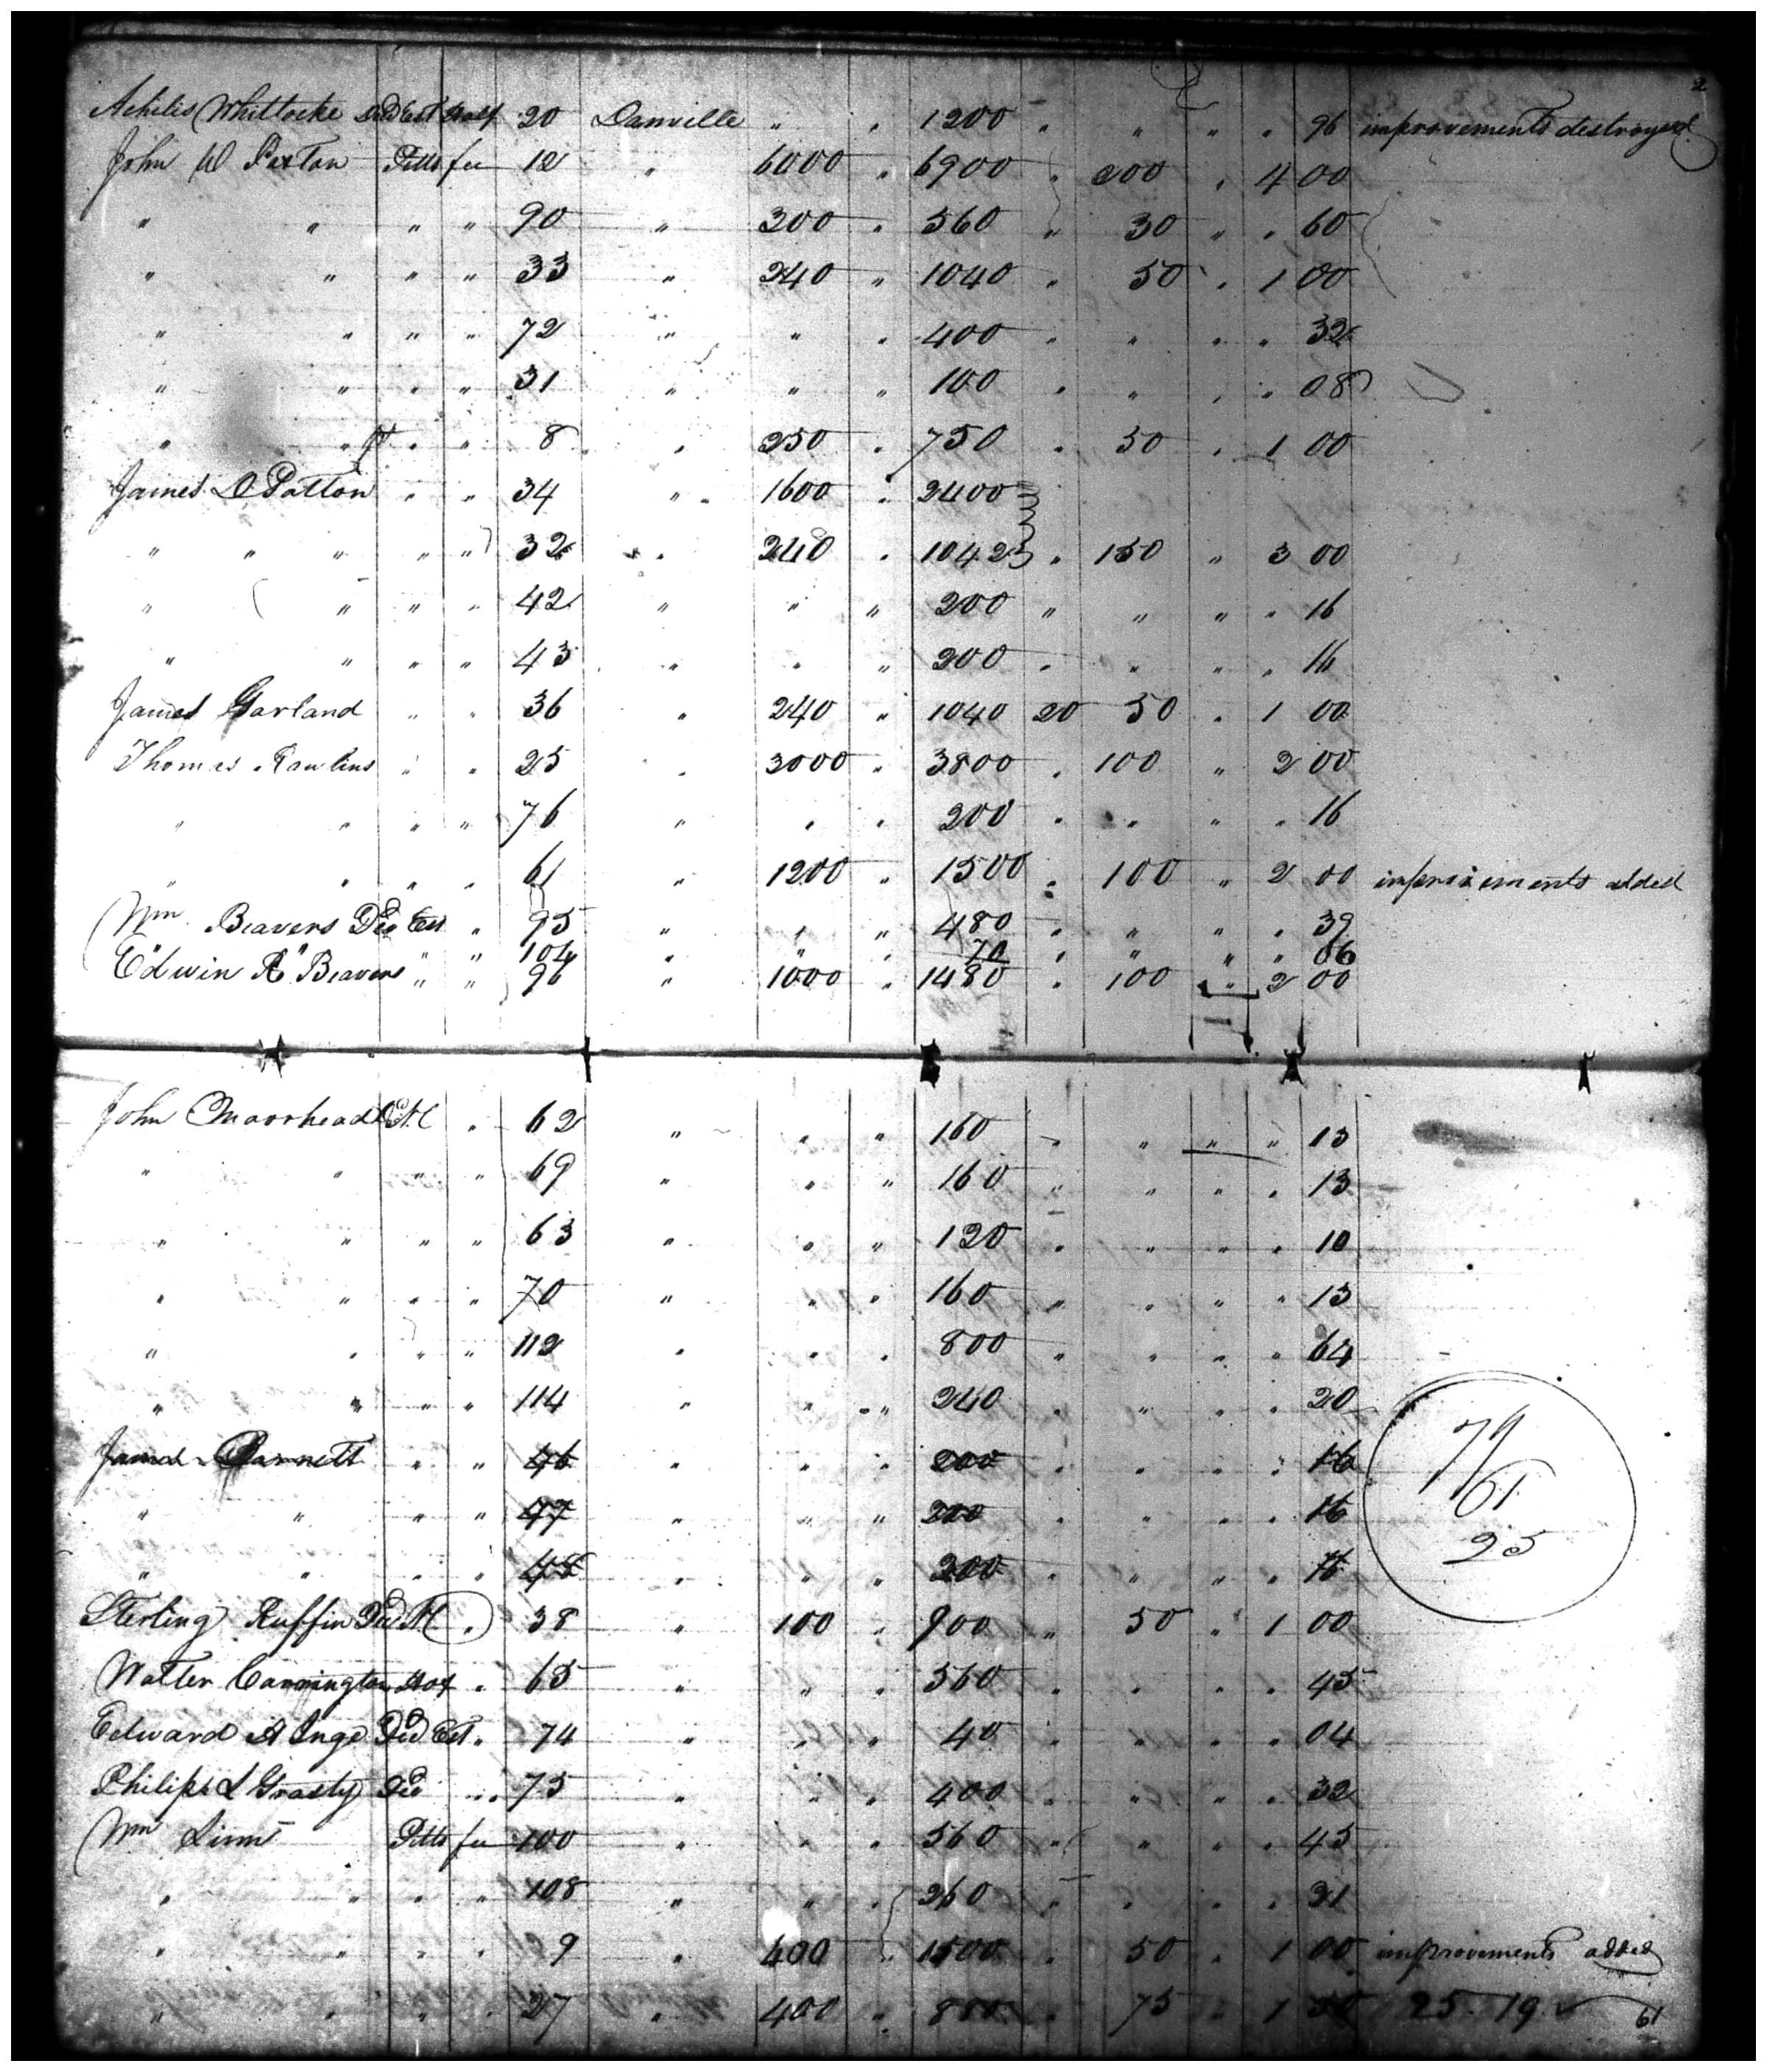 2
Achilis Whitlocke Decd Est Half 20 Danville " " 1200 " " " " 96 improvements destroyed
John W Paxton Pitts fee 12 " 6000 " 6900 " 200 " 4 00
" " " " 90 " 300 " 560 " 30 " " 60
" " " " 33 " 240 " 1040 " 50 " 1 00
" " " " 72 " " " 400 " " " " 32
" " " " 31 " " " 100 " " " " 08
" " " " 8 " 250 " 750 " 50 " 1 00
James D Patton " " 34 " " 1600 " 2400
" " " " " 32 " " 240 " 1042 " 150 " 3 00
" " " " 42 " " " 200 " " " " 16
" " " " 43 " " " 200 " " " " 16
James Garland " " 36 " 240 " 1040 20 50 " 1 00
Thomas Rawlins " " 25 " 3000 " 3800 " 100 " 2 00
" " " " 76 " " " 200 " " " " 16
" " " " 61 " 1200 " 1500 " 100 " 2 00 improvements added
Wm Beavers Decd Est " 95 " " " 480 " " " " 39
" " " " 104 " " " 70 " " " " 06
Edwin R Beavers " " 96 " 1000 " 1480 " 100 " 2 00
John Moorhead N C " 62 " " " 160 " " " " 13
" " " " 69 " " " 160 " " " " 13
" " " " 63 " " " 120 " " " " 10
" " " " 70 " " " 160 " " " " 13
" " " " 112 " " " 800 " " " " 64
" " " " 114 " " " 240 " " " " 20
James Barnett " " 46 " " " 200 " " " " 16
" " " " 47 " " " 200 " " " " 16
" " " " 48 " " " 200 " " " " 16
79
61
25
Sterling Ruffin Decd N C " 38 " 100 " 900 " 50 " 1 00
Walter Carrington Hax " 65 " " " 560 " " " " 45
Edward A Inge Decd Est " 74 " " " 40 " " " " 04
Philip L Grasty Decd " " 75 " " " 400 " " " " 32
Wm Linn Pitts fee 100 " " " 560 " " " " 45
" " " " 108 " " " 260 " " " " 21
" " " " 9 " 400 " 1500 " 50 " 1 00 improvements added
" " " " 27 " 400 " 800 " 75 " 1 50 25.19
61